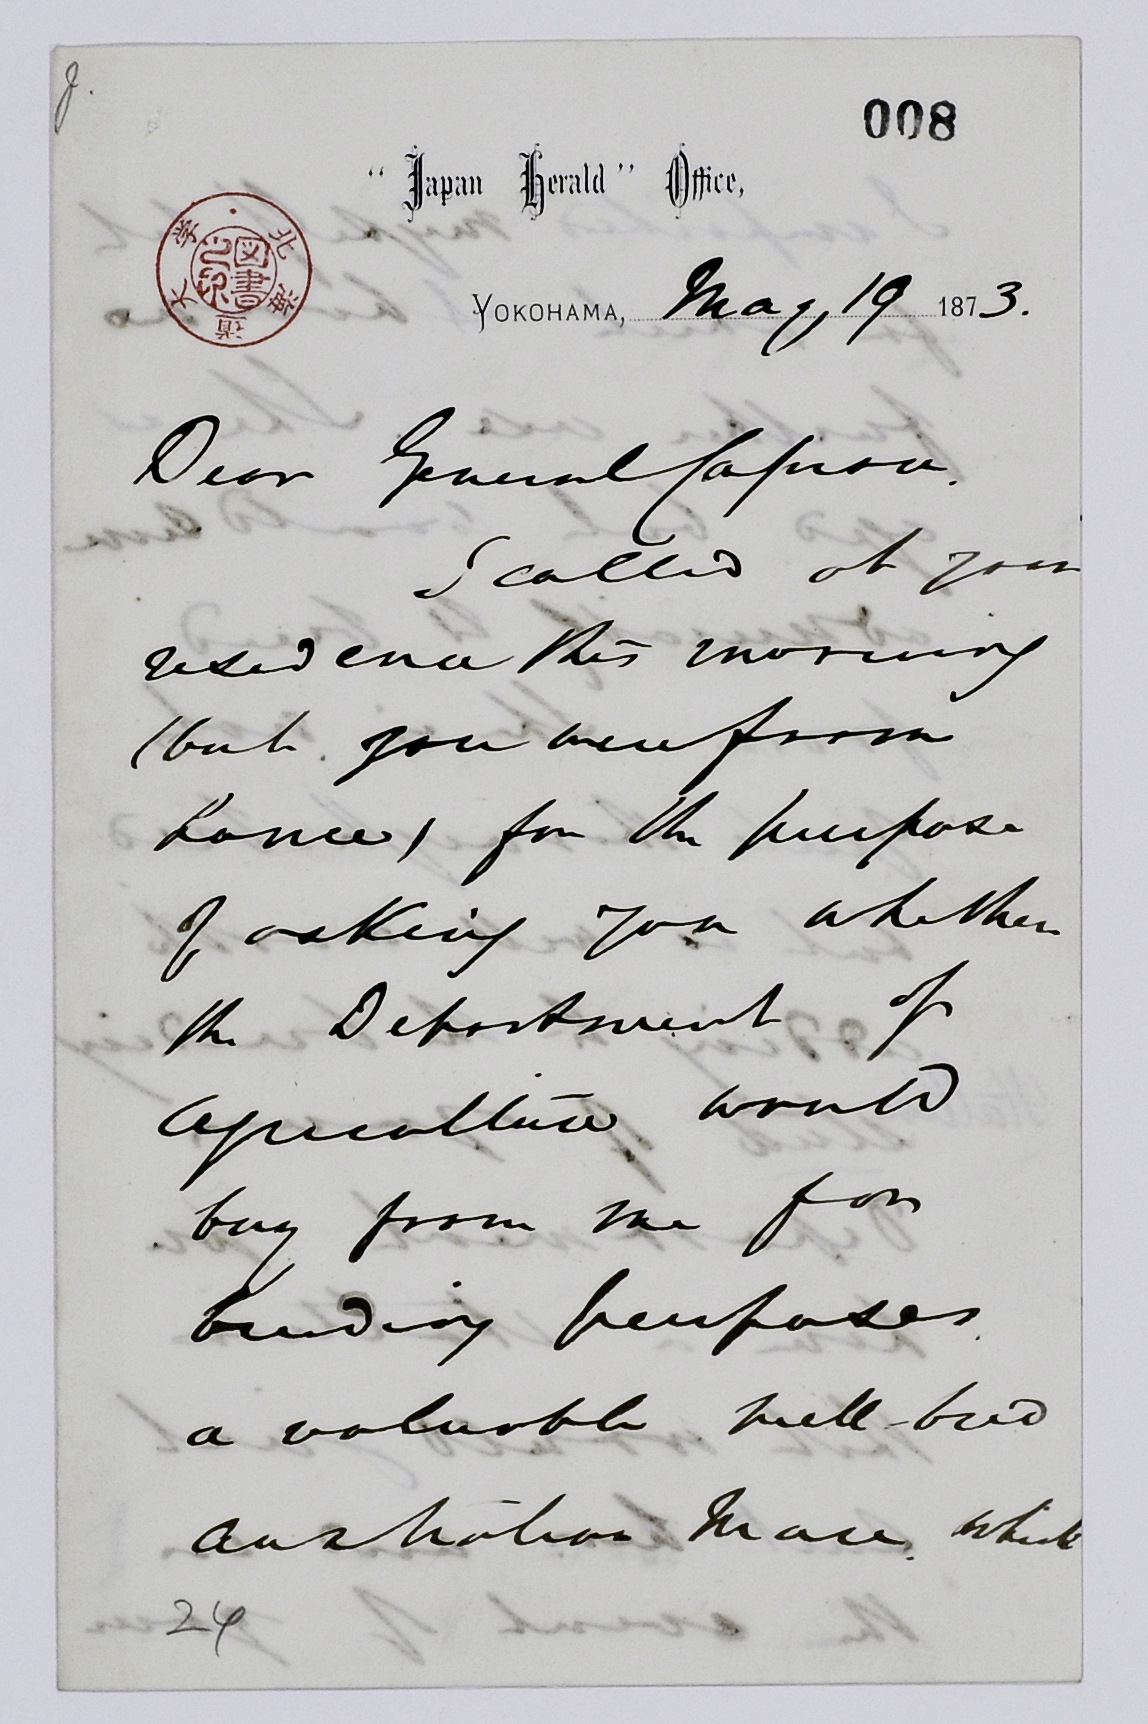 J.
008
"Japan Herald" Office,
北海道大学
図書之印
YOKOHAMA, May, 19 1873.
Dear General Capron.
I called at your
residence this morning
(but you were from
home) for the purpose
of asking you whether
the Department of
Agriculture would
buy from me for
breeding purposes
a valuable well-bred
Australian Mare. which
24